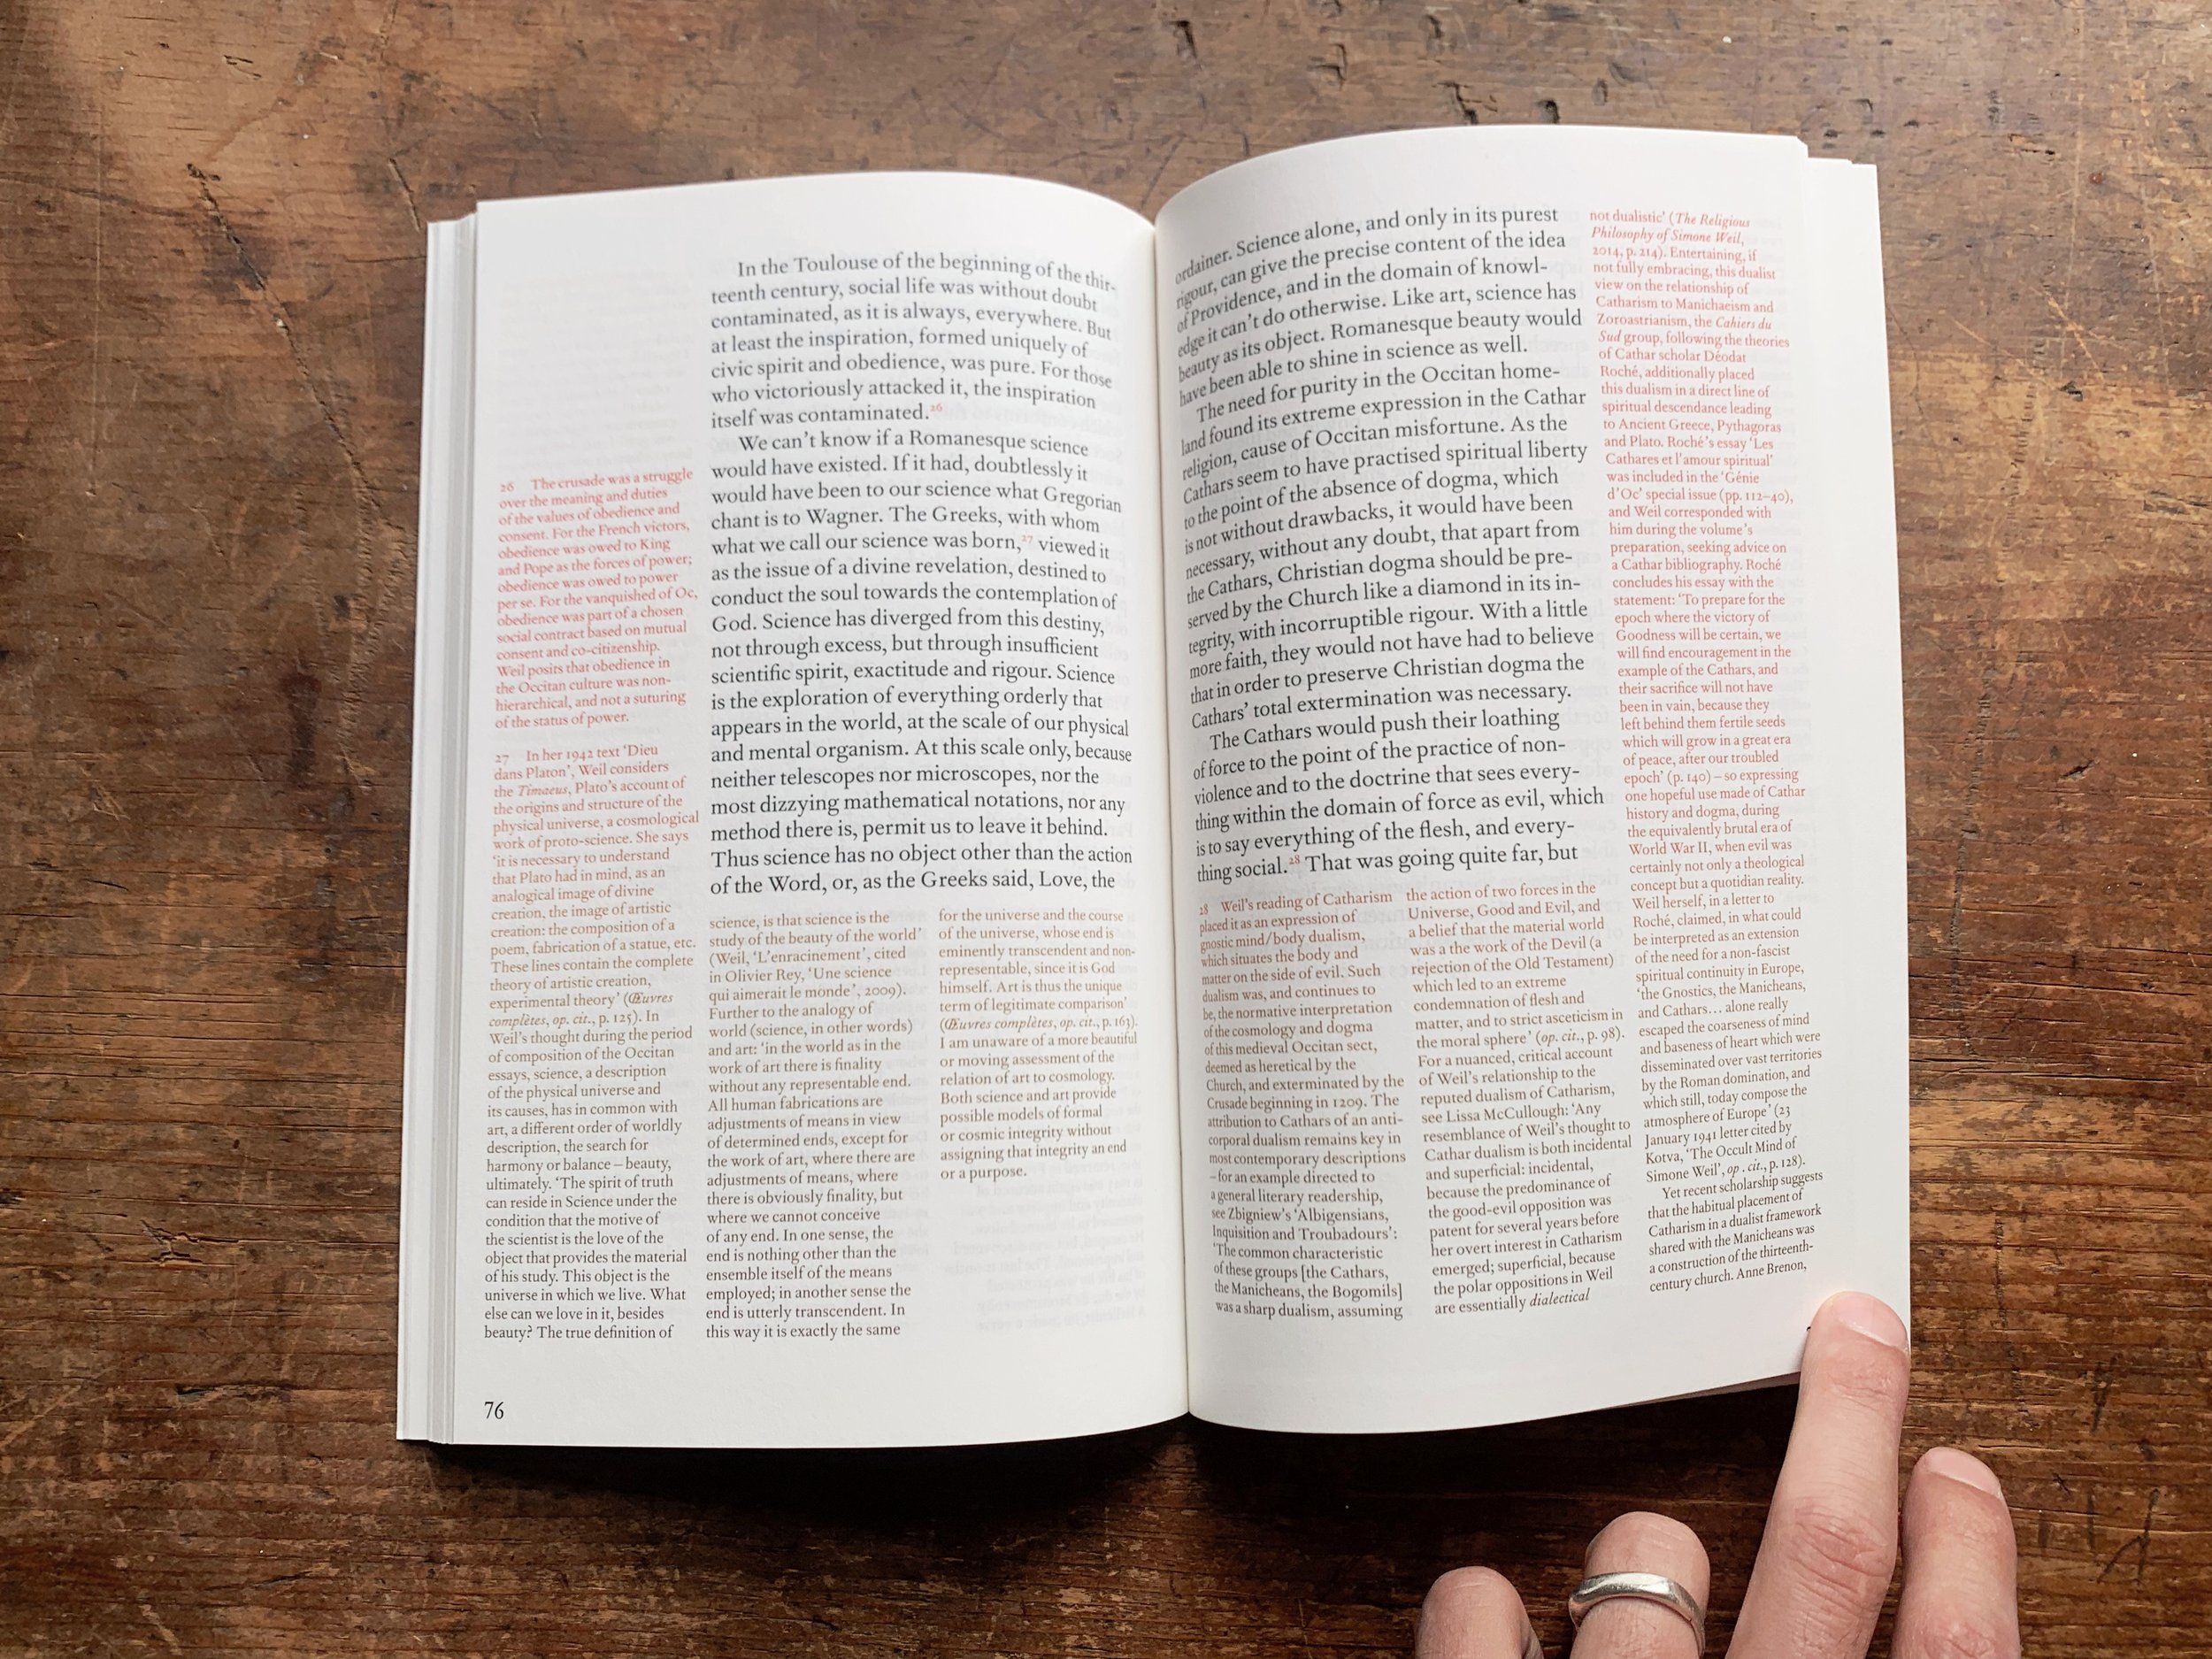 In the Toulouse of the beginning of the thir-
teenth century, social life was without doubt
contaminated, as it is always, everywhere. But
at least the inspiration, formed uniquely of
civic spirit and obedience, was pure. For those
who victoriously attacked it, the inspiration
itself was contaminated.26
We can't know if a Romanesque science
would have existed. If it had, doubtlessly it
would have been to our science what Gregorian
chant is to Wagner. The Greeks, with whom
what we call our science was born,27 viewed it
as the issue of a divine revelation, destined to
conduct the soul towards the contemplation of
God. Science has diverged from this destiny,
not through excess, but through insufficient
scientific spirit, exactitude and rigour. Science
is the exploration of everything orderly that
appears in the world, at the scale of our physical
and mental organism. At this scale only, because
neither telescopes nor microscopes, nor the
most dizzying mathematical notations, nor any
method there is, permit us to leave it behind.
Thus science has no object other than the action
of the Word, or, as the Greeks said, Love, the
26 The crusade was a struggle
over the meaning and duties
of the values of obedience and
consent. For the French victors,
obedience was owed to King
and Pope as the forces of power;
obedience was owed to power
per se. For the vanquished of Oc,
obedience was part of a chosen
social contract based on mutual
consent and co-citizenship.
Weil posits that obedience in
the Occitan culture was non-
hierarchical, and not a suturing
of the status of power.
27 In her 1942 text 'Dieu
dans Platon', Weil considers
the Timaeus, Plato's account of
the origins and structure of the
physical universe, a cosmological
work of proto-science. She says
'it is necessary to understand
that Plato had in mind, as an
analogical image of divine
creation, the image of artistic
creation: the composition of a
poem, fabrication of a statue, etc.
These lines contain the complete
theory of artistic creation,
experimental theory' (Œuvres
complètes, op. cit., p. 125). In
Weil's thought during the period
of composition of the Occitan
essays, science, a description
of the physical universe and
its causes, has in common with
art, a different order of worldly
description, the search for
harmony or balance – beauty,
ultimately. 'The spirit of truth
can reside in Science under the
condition that the motive of
the scientist is the love of the
object that provides the material
of his study. This object is the
universe in which we live. What
else can we love in it, besides
beauty? The true definition of
science, is that science is the
study of the beauty of the world'
(Weil, 'L'enracinement', cited
in Olivier Rey, 'Une science
qui aimerait le monde', 2009).
Further to the analogy of
world (science, in other words)
and art: 'in the world as in the
work of art there is finality
without any representable end.
All human fabrications are
adjustments of means in view
of determined ends, except for
the work of art, where there are
adjustments of means, where
there is obviously finality, but
where we cannot conceive
of any end. In one sense, the
end is nothing other than the
ensemble itself of the means
employed; in another sense the
end is utterly transcendent. In
this way it is exactly the same
for the universe and the course
of the universe, whose end is
eminently transcendent and non-
representable, since it is God
himself. Art is thus the unique
term of legitimate comparison'
(Œuvres complètes, op. cit., p. 163).
I am unaware of a more beautiful
or moving assessment of the
relation of art to cosmology.
Both science and art provide
possible models of formal
or cosmic integrity without
assigning that integrity an end
or a purpose.
76
ordainer. Science alone, and only in its purest
rigour, can give the precise content of the idea
of Providence, and in the domain of knowl-
edge it can't do otherwise. Like art, science has
beauty as its object. Romanesque beauty would
have been able to shine in science as well.
The need for purity in the Occitan home-
land found its extreme expression in the Cathar
religion, cause of Occitan misfortune. As the
Cathars seem to have practised spiritual liberty
to the point of the absence of dogma, which
is not without drawbacks, it would have been
necessary, without any doubt, that apart from
the Cathars, Christian dogma should be pre-
served by the Church like a diamond in its in-
tegrity, with incorruptible rigour. With a little
more faith, they would not have had to believe
that in order to preserve Christian dogma the
Cathars' total extermination was necessary.
The Cathars would push their loathing
of force to the point of the practice of non-
violence and to the doctrine that sees every-
thing within the domain of force as evil, which
is to say everything of the flesh, and every-
thing social.28 That was going quite far, but
28 Weil's reading of Catharism
placed it as an expression of
gnostic mind/body dualism,
which situates the body and
matter on the side of evil. Such
dualism was, and continues to
be, the normative interpretation
of the cosmology and dogma
of this medieval Occitan sect,
deemed as heretical by the
Church, and exterminated by the
Crusade beginning in 1209. The
attribution to Cathars of an anti-
corporal dualism remains key in
most contemporary descriptions
– for an example directed to
a general literary readership,
see Zbigniew's 'Albigensians,
Inquisition and Troubadours':
'The common characteristic
of these groups [the Cathars,
the Manicheans, the Bogomils]
was a sharp dualism, assuming
the action of two forces in the
Universe, Good and Evil, and
a belief that the material world
was a the work of the Devil (a
rejection of the Old Testament)
which led to an extreme
condemnation of flesh and
matter, and to strict asceticism in
the moral sphere' (op. cit., p. 98).
For a nuanced, critical account
of Weil's relationship to the
reputed dualism of Catharism,
see Lissa McCullough: 'Any
resemblance of Weil's thought to
Cathar dualism is both incidental
and superficial: incidental,
because the predominance of
the good-evil opposition was
patent for several years before
her overt interest in Catharism
emerged; superficial, because
the polar oppositions in Weil
are essentially dialectical
not dualistic' (The Religious
Philosophy of Simone Weil,
2014, p. 214). Entertaining, if
not fully embracing, this dualist
view on the relationship of
Catharism to Manichaeism and
Zoroastrianism, the Cahiers du
Sud group, following the theories
of Cathar scholar Déodat
Roché, additionally placed
this dualism in a direct line of
spiritual descendance leading
to Ancient Greece, Pythagoras
and Plato. Roché's essay 'Les
Cathares et l'amour spiritual'
was included in the 'Génie
d'Oc' special issue (pp. 112–40),
and Weil corresponded with
him during the volume's
preparation, seeking advice on
a Cathar bibliography. Roché
concludes his essay with the
statement: 'To prepare for the
epoch where the victory of
Goodness will be certain, we
will find encouragement in the
example of the Cathars, and
their sacrifice will not have
been in vain, because they
left behind them fertile seeds
which will grow in a great era
of peace, after our troubled
epoch' (p. 140) – so expressing
one hopeful use made of Cathar
history and dogma, during
the equivalently brutal era of
World War II, when evil was
certainly not only a theological
concept but a quotidian reality.
Weil herself, in a letter to
Roché, claimed, in what could
be interpreted as an extension
of the need for a non-fascist
spiritual continuity in Europe,
'the Gnostics, the Manicheans,
and Cathars… alone really
escaped the coarseness of mind
and baseness of heart which were
disseminated over vast territories
by the Roman domination, and
which still, today compose the
atmosphere of Europe' (23
January 1941 letter cited by
Kotva, 'The Occult Mind of
Simone Weil', op . cit., p. 128).
Yet recent scholarship suggests
that the habitual placement of
Catharism in a dualist framework
shared with the Manicheans was
a construction of the thirteenth-
century church. Anne Brenon,